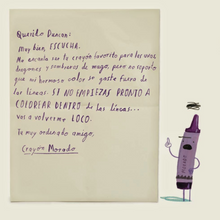 Querido Duncan:
Muy bien, ESCUCHA.
Me encanta ser tu crayón favorito para las uvas,
dragones y sombreros de mago, pero no soporto
que mi hermoso color se gaste fuera de
las líneas. SI NO EMPIEZAS PRONTO A
COLOREAR DENTRO de las líneas...
voy a volverme LOCO.
Tu muy ordenado amigo,
Crayón Morado